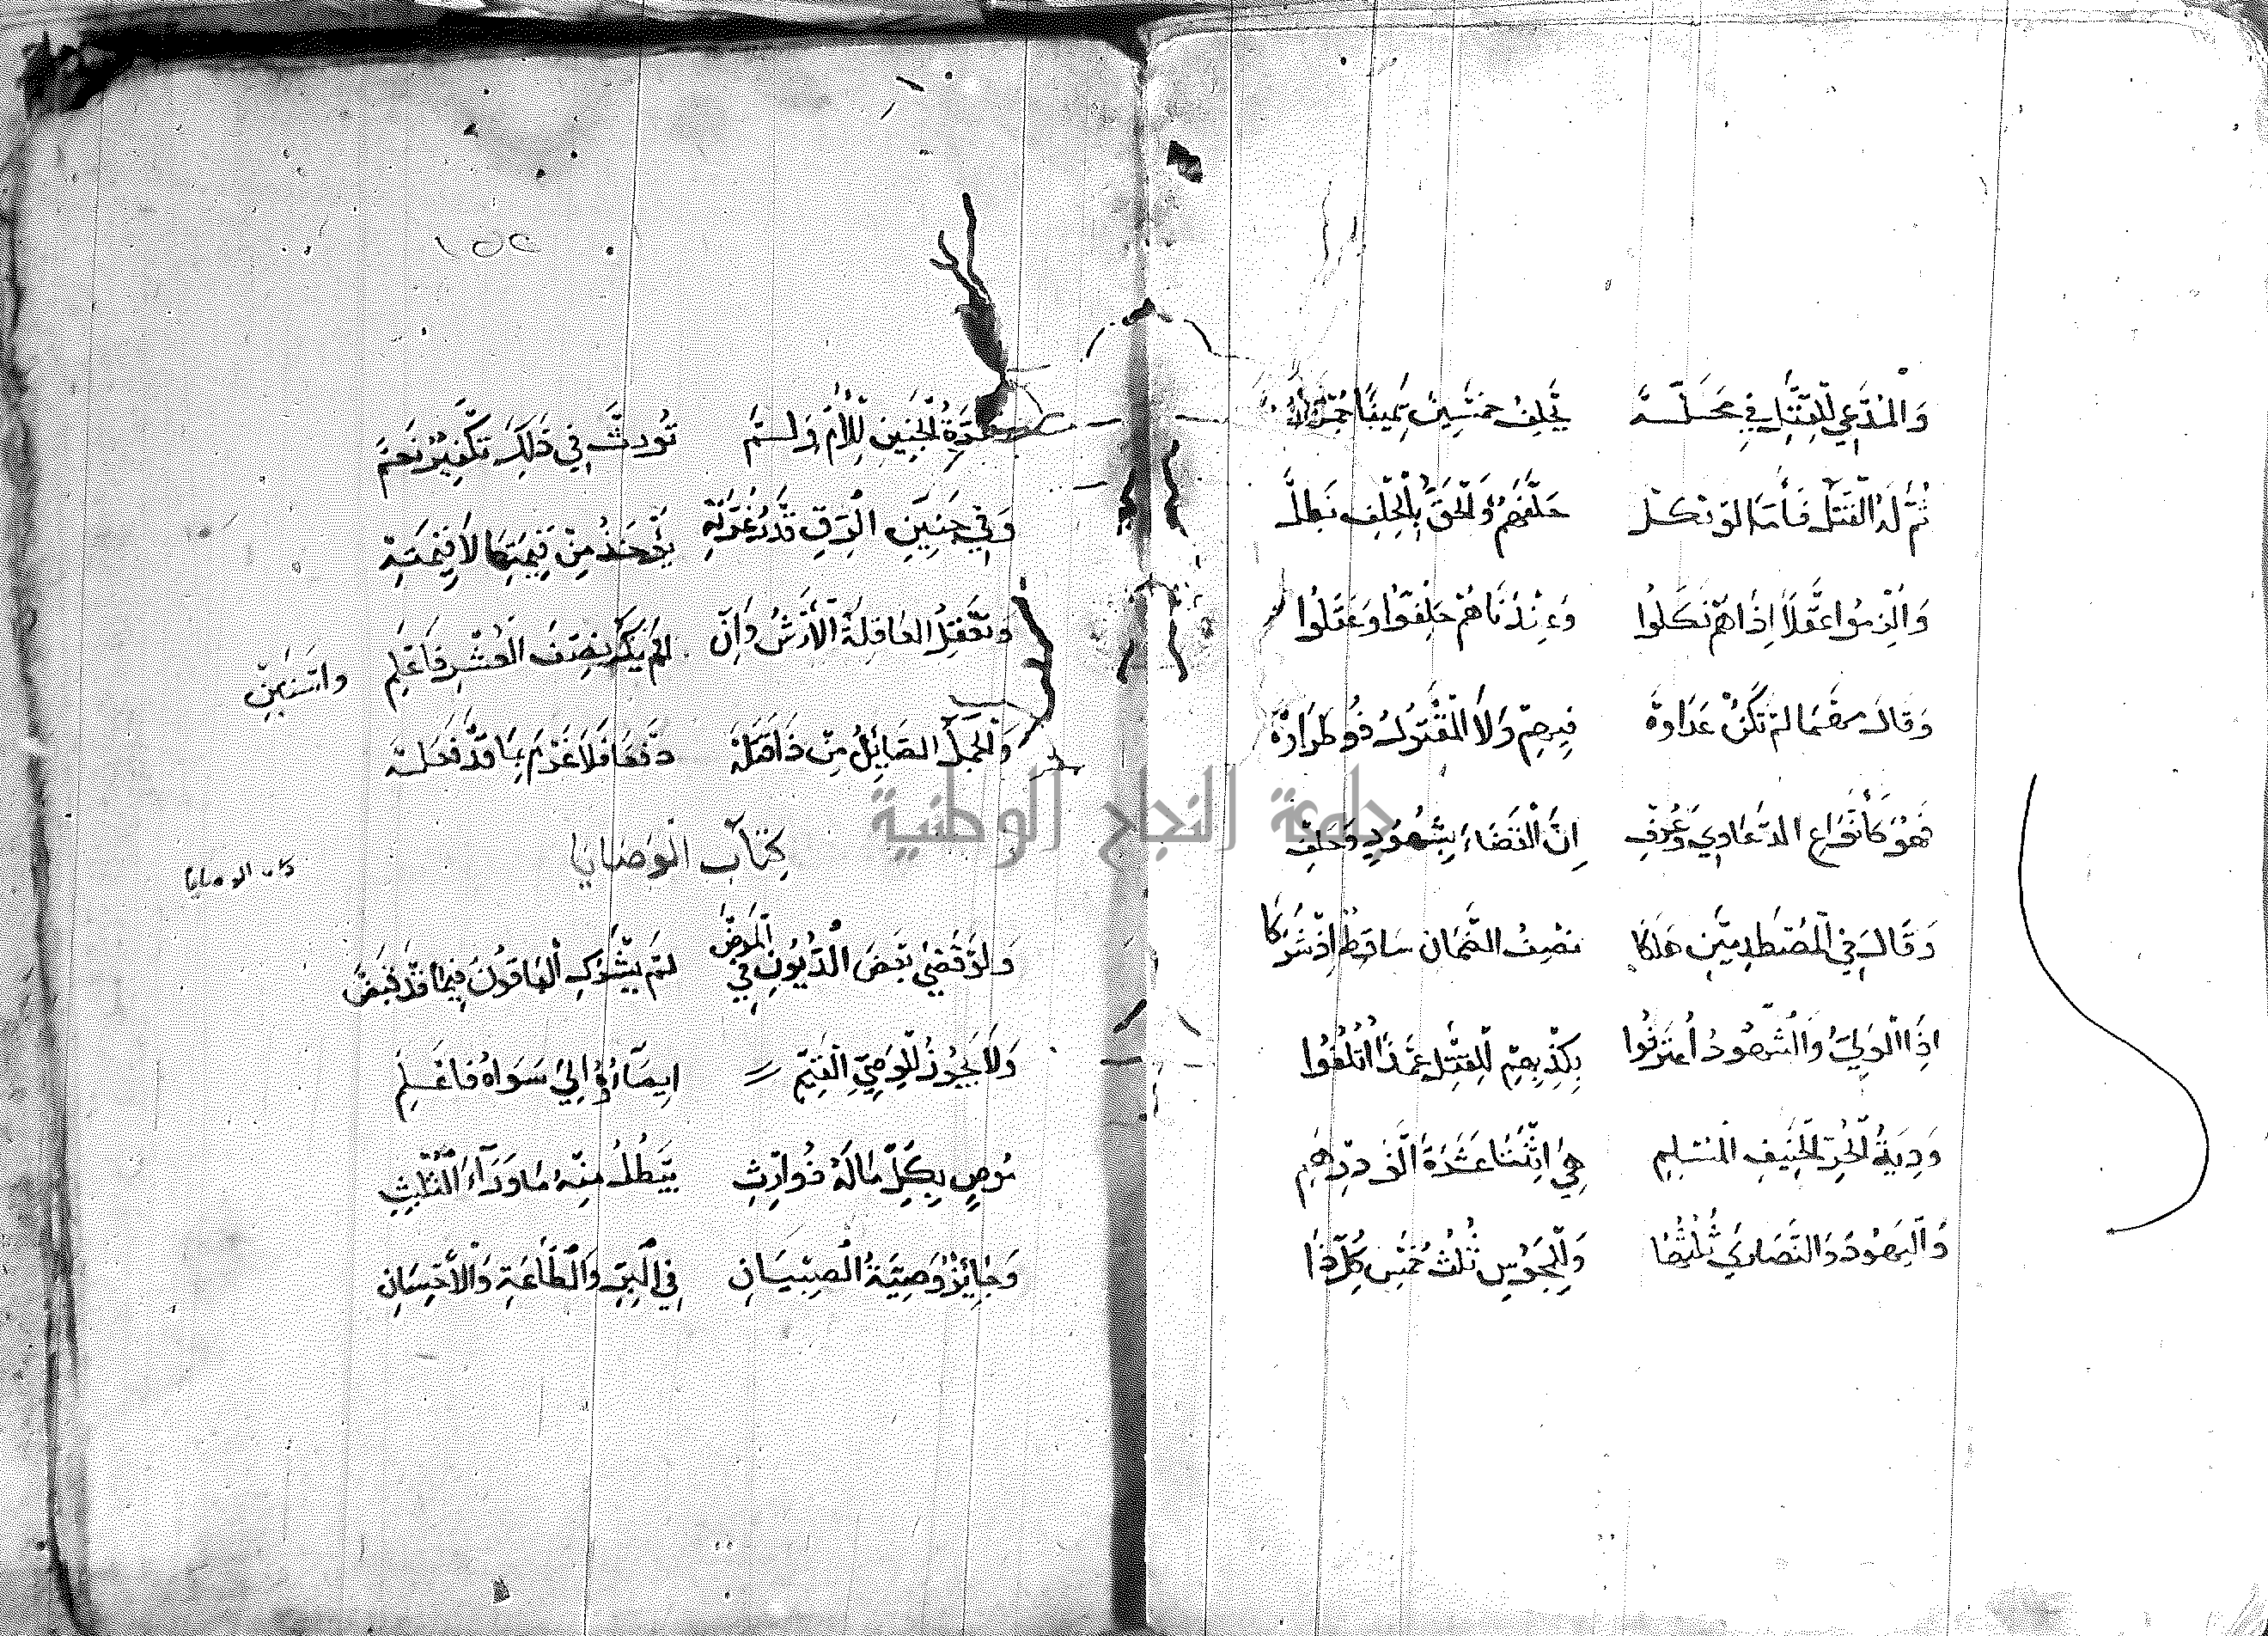 وَالمُدَّعِي لِلقَتلِ فِي مَحَلَّهْ يَحلِفُ خَمسِينَ يَمِينًا
ثُمَّ لَهُ القَتلُ فَأَمَّا لَو نَكَل حَلَّفَهُم وَالحَقُّ بِالحِلفِ بَطَل
وَأُلزِمُوا عَقلًا إِذَا هُم نَكَلُوا وَعِندَنَا هُم حَلَفُوا وَعَقَلُوا
وَقَالَ مَهمَا لَم تَكُن عَدَاوَة فِيهِم وَلَا المَقتُولُ ذُو طَرَاوَة
فَهوَ كَأَنوَاعِ الدَّعَاوِي وَعُرِف إِنَّ القَضَاءَ بِشُهُودٍ وَحَلِف
وَقَالَ فِي المُصطَدِمَينِ هَلَكَا نِصفُ الضَّمَانِ سَاقِطٌ إِذ شَرَكَا
إِذَا الوَلِيُّ وَالشُّهُودُ اعتَرَفُوا بِكِذبِهِم لِلقَتلِ عَمدًا أُتلِفُوا
وَدِيَةُ الحُرِّ الحَنِيفِ المُسلِمِ هِيَ اثنَتَا عَشرَةَ أَلفَ دِرهَمِ
وَاليَهُودُ وَالنَّصَارَى ثُلثُهَا وَلِلمَجُوسِ ثُلثُ خُمسِ كُلِّ ذَا
١٥٢
وَغُرَّةُ الجَنِينِ لِلأُمِّ وَلَم تُورَث فِي ذَلِكَ تَكفِيرٌ نَحَم
وَفِي جَنِينِ الرِّقِّ قَدرُ غُرَّتِهِ يُؤخَذُ مِن قِيمَتِهَا لَا قِيمَتِهِ
وَتَعقِلُ العَاقِلَةُ الأَرشَ وَإِن لَم يَكُ نِصفَ العُشرِ فَاعلَم وَاستَبِن
وَالجَمَلُ الصَّائِلُ مَن ذَا قَتَلَه دَفعًا فَلَا غُرمَ بِمَا قَد فَعَلَه
كِتَابُ الوَصَايَا
كتاب الوصايا
وَلَو قَضَى بَعضَ الدُّيُونِ فِي المَرَض لَم يَشرَكِ البَاقُونَ فِيمَا قَد قَبَض
وَلَا يَجُوزُ لِلوَصِيِّ القَيِّمِ إِيصَاؤُهُ إِلَى سِوَاهُ فَاعلَمِ
مُوصٍ بِكُلِّ مَالِهِ ذُو وَارِثِ يَبطُلُ مِنهُ مَا وَرَاءَ الثُّلُثِ
وَجَائِزٌ وَصِيَّةُ الصِّبيَانِ فِي البِرِّ وَالطَّاعَةِ وَالإِحسَانِ
جامعة النجاح الوطنية